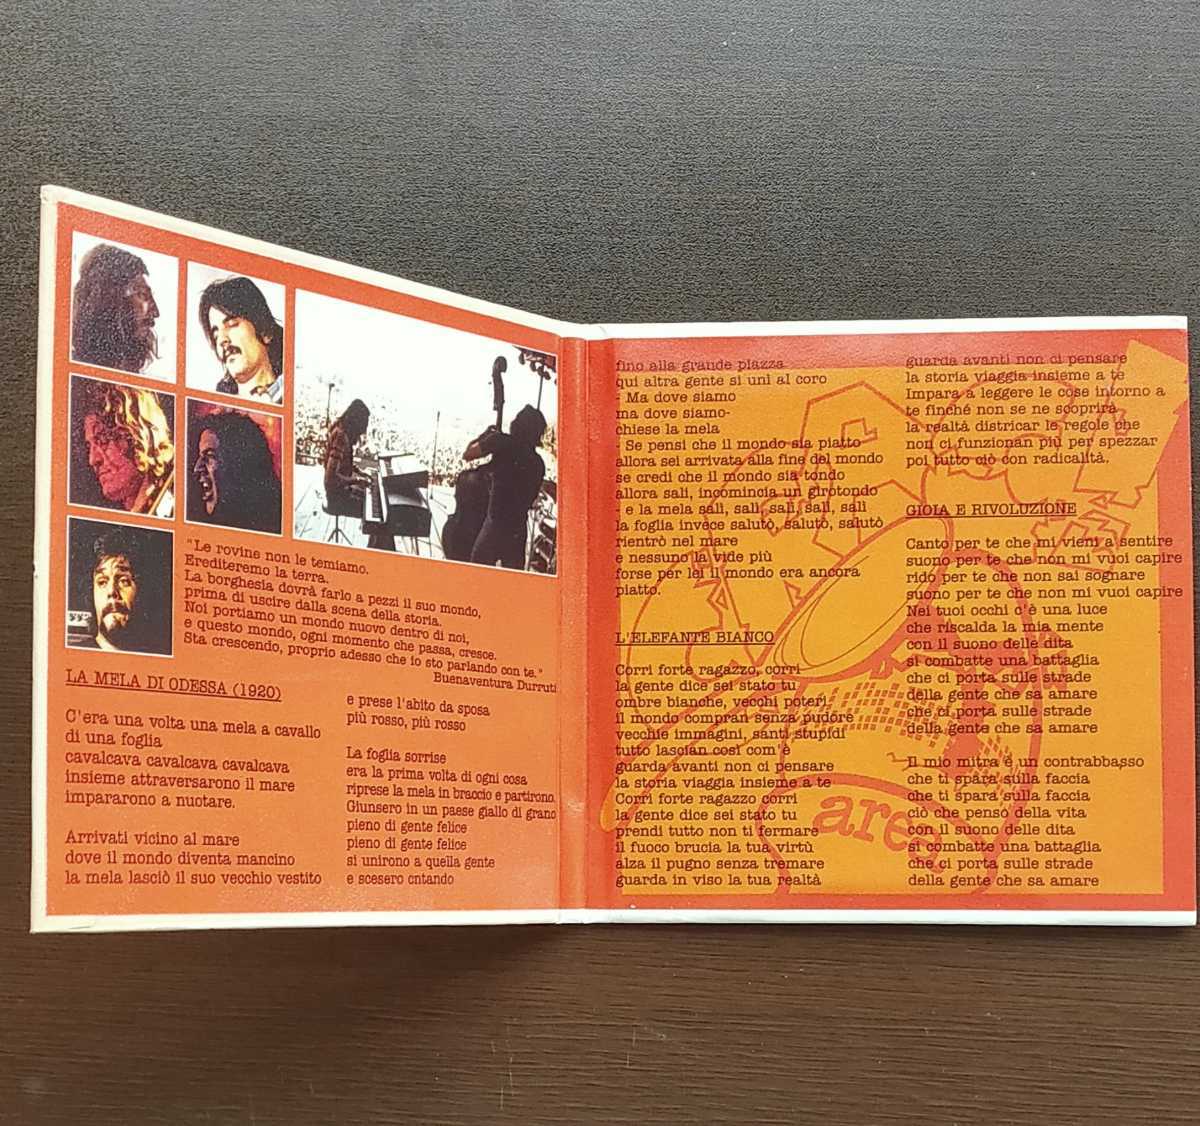 "Le rovine non le temiamo.
Erediteremo la terra.
La borghesia dovrà farlo a pezzi il suo mondo,
prima di uscire dalla scena della storia.
Noi portiamo un mondo nuovo dentro di noi,
e questo mondo, ogni momento che passa, cresce.
Sta crescendo, proprio adesso che io sto parlando con te."
Buenaventura Durruti
LA MELA DI ODESSA (1920)
C'era una volta una mela a cavallo
di una foglia
cavalcava cavalcava cavalcava
insieme attraversarono il mare
impararono a nuotare.
Arrivati vicino al mare
dove il mondo diventa mancino
la mela lasciò il suo vecchio vestito
e prese l'abito da sposa
più rosso, più rosso
La foglia sorrise
era la prima volta di ogni cosa
riprese la mela in braccio e partirono.
Giunsero in un paese giallo di grano
pieno di gente felice
pieno di gente felice
si unirono a quella gente
e scesero cntando
fino alla grande piazza
qui altra gente si unì al coro
- Ma dove siamo
ma dove siamo-
chiese la mela
- Se pensi che il mondo sia piatto
allora sei arrivata alla fine del mondo
se credi che il mondo sia tondo
allora sali, incomincia un girotondo
- e la mela salì, salì, salì, salì, salì
la foglia invece salutò, salutò, salutò
rientrò nel mare
e nessuno la vide più
forse per lei il mondo era ancora
piatto.
L'ELEFANTE BIANCO
Corri forte ragazzo, corri
la gente dice sei stato tu
ombre bianche, vecchi poteri
il mondo compran senza pudore
vecchie immagini, santi stupidi
tutto lascian così com'è
guarda avanti non ci pensare
la storia viaggia insieme a te
Corri forte ragazzo corri
la gente dice sei stato tu
prendi tutto non ti fermare
il fuoco brucia la tua virtù
alza il pugno senza tremare
guarda in viso la tua realtà
guarda avanti non ci pensare
la storia viaggia insieme a te
Impara a leggere le cose intorno a
te finché non se ne scoprirà
la realtà districar le regole che
non ci funzionan più per spezzar
poi tutto ciò con radicalità.
GIOIA E RIVOLUZIONE
Canto per te che mi vieni a sentire
suono per te che non mi vuoi capire
rido per te che non sai sognare
suono per te che non mi vuoi capire
Nei tuoi occhi c'è una luce
che riscalda la mia mente
con il suono delle dita
si combatte una battaglia
che ci porta sulle strade
della gente che sa amare
che ci porta sulle strade
della gente che sa amare
Il mio mitra è un contrabbasso
che ti spara sulla faccia
che ti spara sulla faccia
ciò che penso della vita
con il suono delle dita
si combatte una battaglia
che ci porta sulle strade
della gente che sa amare
area